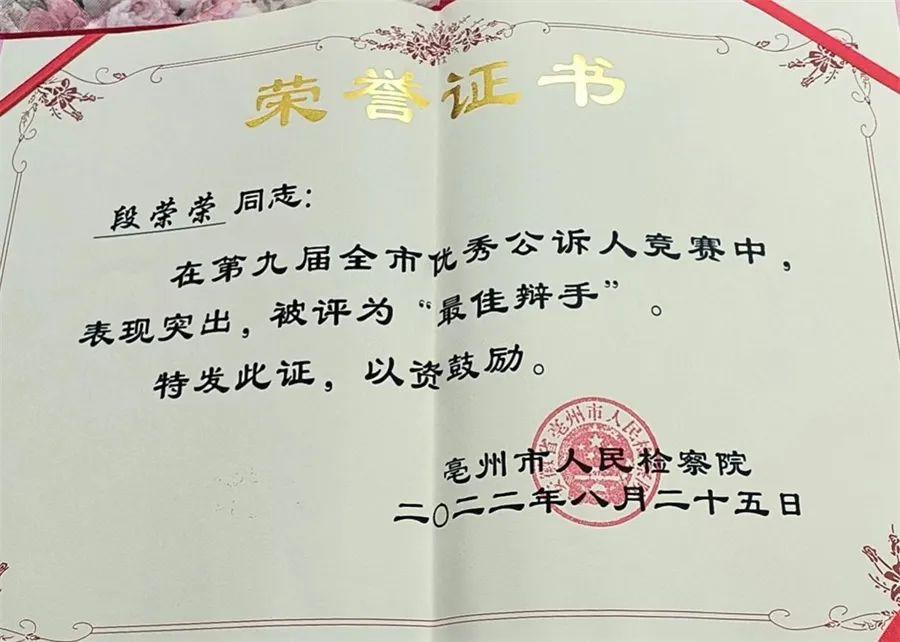 荣誉证书
段荣荣 同志：
在第九届全市优秀公诉人竞赛中，
表现突出，被评为“最佳辩手”。
特发此证，以资鼓励。
亳州市人民检察院
二〇二二年八月二十五日